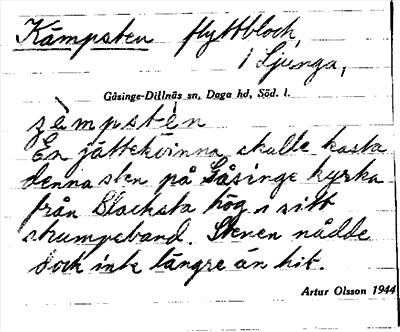 Kämpsten flyttblock,
i Ljunga,
Gåsinge-Dillnäs sn, Daga hd, Söd. l.
En jättekvinna skulle kasta
denna sten på Gåsinge kyrka
från Blacksta hög i sitt
strumpeband. Stenen nådde
dock inte längre än hit.
Artur Olsson 1944